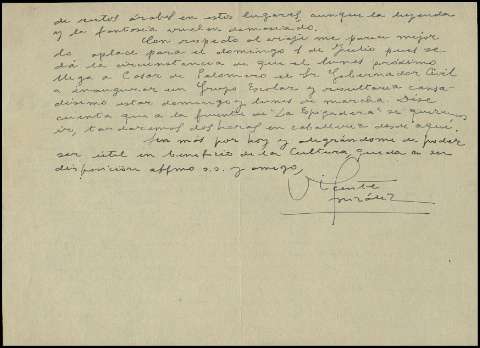 de restos árabes en estos lugares, aunque la leyenda
y la fantasía vuelen demasiado.
Con respecto al viaje me parece mejor
lo aplace para el domingo 1 de Julio pues se
dá la circunstancia de que el lunes próximo
llega a Casar de Palomero el Sr Gobernador Civil
a inaugurar un Grupo Escolar y resultaria cansa-
dísimo estar domingo y lunes de marcha. Dése
cuenta que a la fuente de "La Espadera" si queremos
ir, tardaremos dos horas en caballeria desde aquí.
Sin más por hoy y alegrándome de poder
ser útil en beneficio de la Cultura queda a su
disposición affmo s.s. y amigo,
Vicente